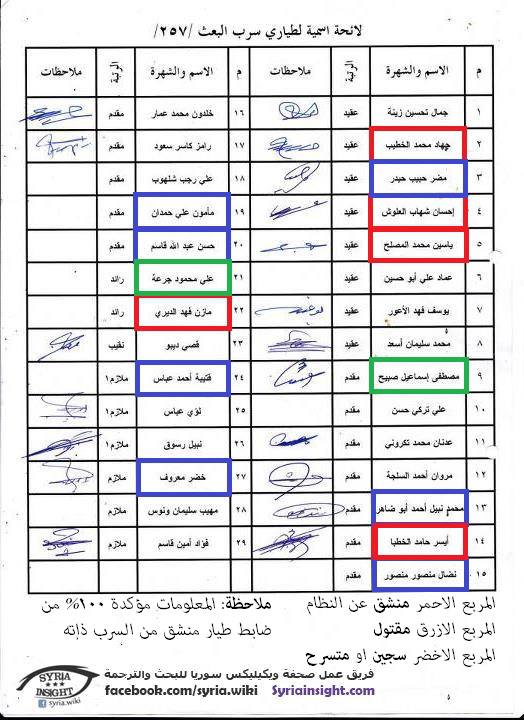 لائحة اسمية لطياري سرب البعث /٢٥٧/
م الاسم والشهرة الرتبة ملاحظات م الاسم والشهرة الرتبة ملاحظات
١ جمال تحسين زينة عقيد ١٦ خلدون محمد عمار مقدم
٢ جهاد محمد الخطيب عقيد ١٧ رامز كاسر سعود مقدم
٣ مضر حبيب حيدر عقيد ١٨ علي رجب شلهوب مقدم
٤ إحسان شهاب العلوش عقيد ١٩ مأمون علي حمدان مقدم
٥ ياسين محمد المصلح عقيد ٢٠ حسن عبد الله قاسم مقدم
٦ عماد علي أبو حسين عقيد ٢١ علي محمود جرعة رائد
٧ يوسف فهد الأعور عقيد ٢٢ مازن فهد الديري رائد
٨ محمد سليمان أسعد عقيد ٢٣ قصي ديبو نقيب
٩ مصطفى إسماعيل صبيح مقدم ٢٤ قتيبة أحمد عباس ملازم١
١٠ علي تركي حسن مقدم ٢٥ لؤي عباس ملازم١
١١ عدنان محمد تكروني مقدم ٢٦ نبيل رسوق ملازم١
١٢ مروان أحمد السلجة مقدم ٢٧ خضر معروف ملازم
١٣ محمد نبيل أحمد أبو ضاهر مقدم ٢٨ مهيب سليمان ونوس ملازم
١٤ أيسر حامد الخطبا مقدم ٢٩ فؤاد أمين قاسم ملازم
١٥ نضال منصور منصور مقدم
المربع الاحمر منشق عن النظام
المربع الازرق مقتول
المربع الاخضر سجين او متسرح
ملاحظة: المعلومات مؤكدة ١٠٠% من
ضابط طيار منشق من السرب ذاته
فريق عمل صفحة ويكيليكس سوريا للبحث والترجمة
facebook.com/syria.wiki Syriainsight.com
SYRIA
INSIGHT
syria.wiki